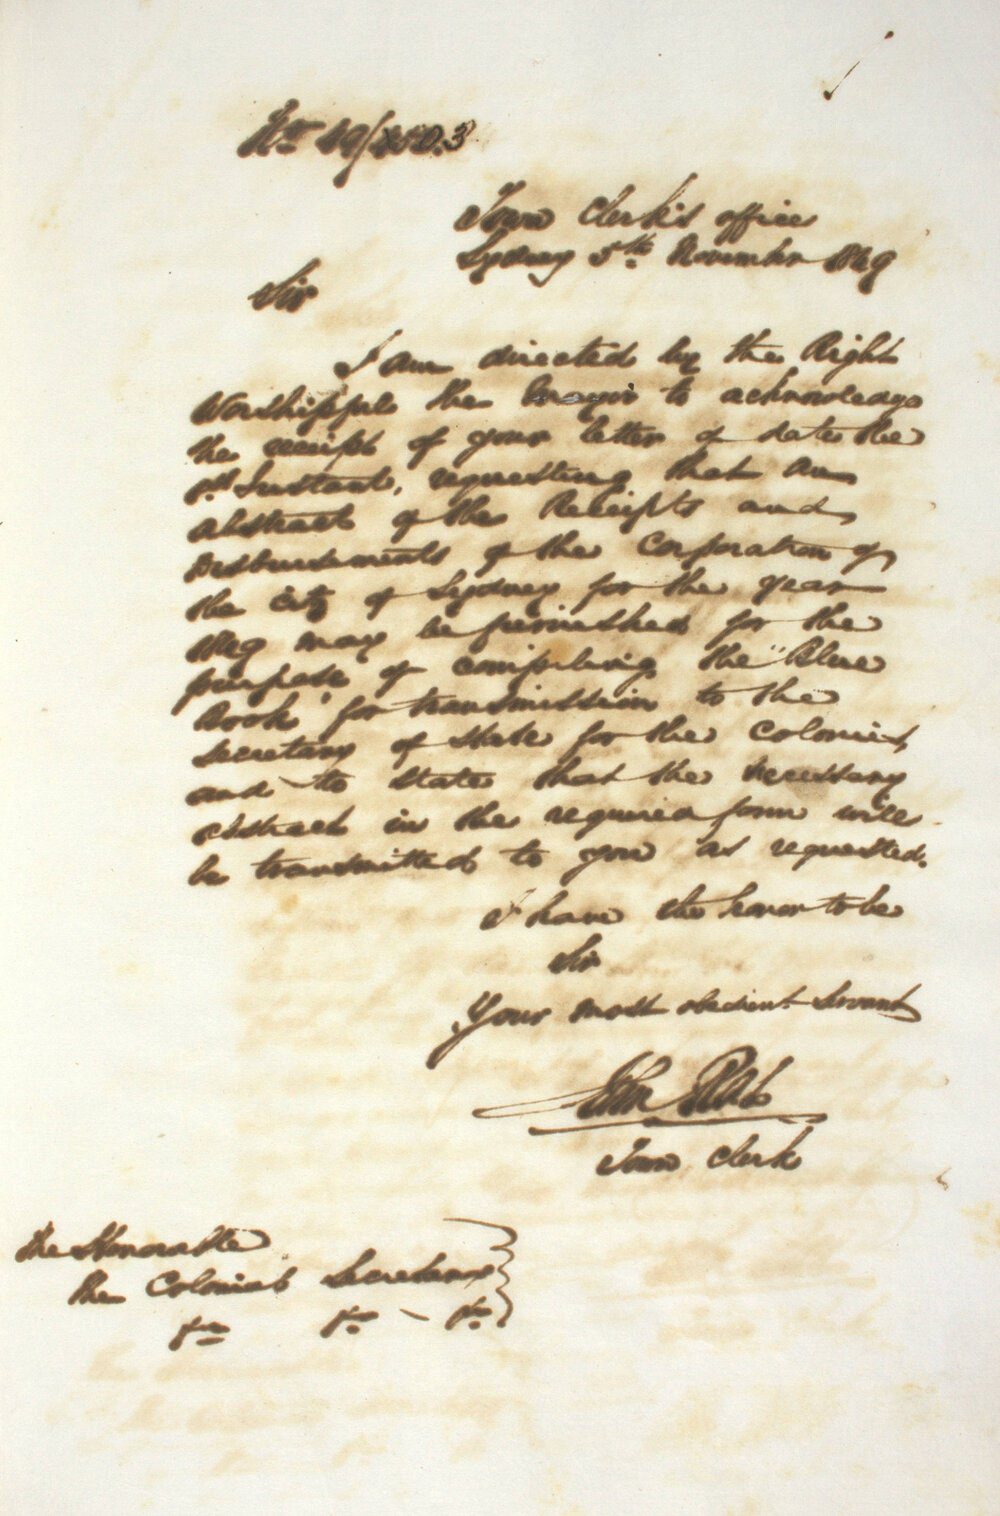 No 49/250.3
Town Clerk's office
Sydney 5th November 1849
Sir
I am directed by the Right
Worshipful the Mayor to acknowledge
the receipt of your letter of date the
1st Instant, requesting that an
abstract of the Receipts and
Disbursements of the Corporation of
the City of Sydney for the year
1849 may be furnished for the
purpose of compiling the "Blue
Book" for transmission to the
Secretary of State for the Colonies,
and to state that the necessary
abstract in the required form will
be transmitted to you as requested.
I have the honor to be
Sir
Your most obedient Servant
John Rae
Town Clerk
The Honorable
the Colonial Secretary
&c &c - &c